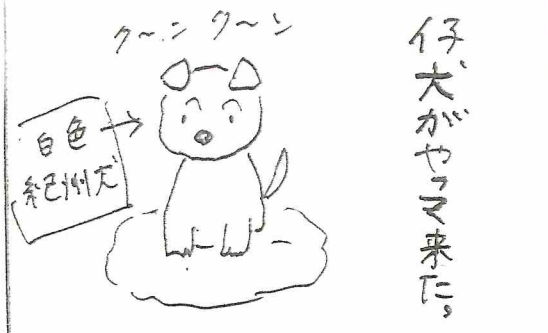 仔犬がやって来た。
ク〜ン ク〜ン
白色
紀州犬